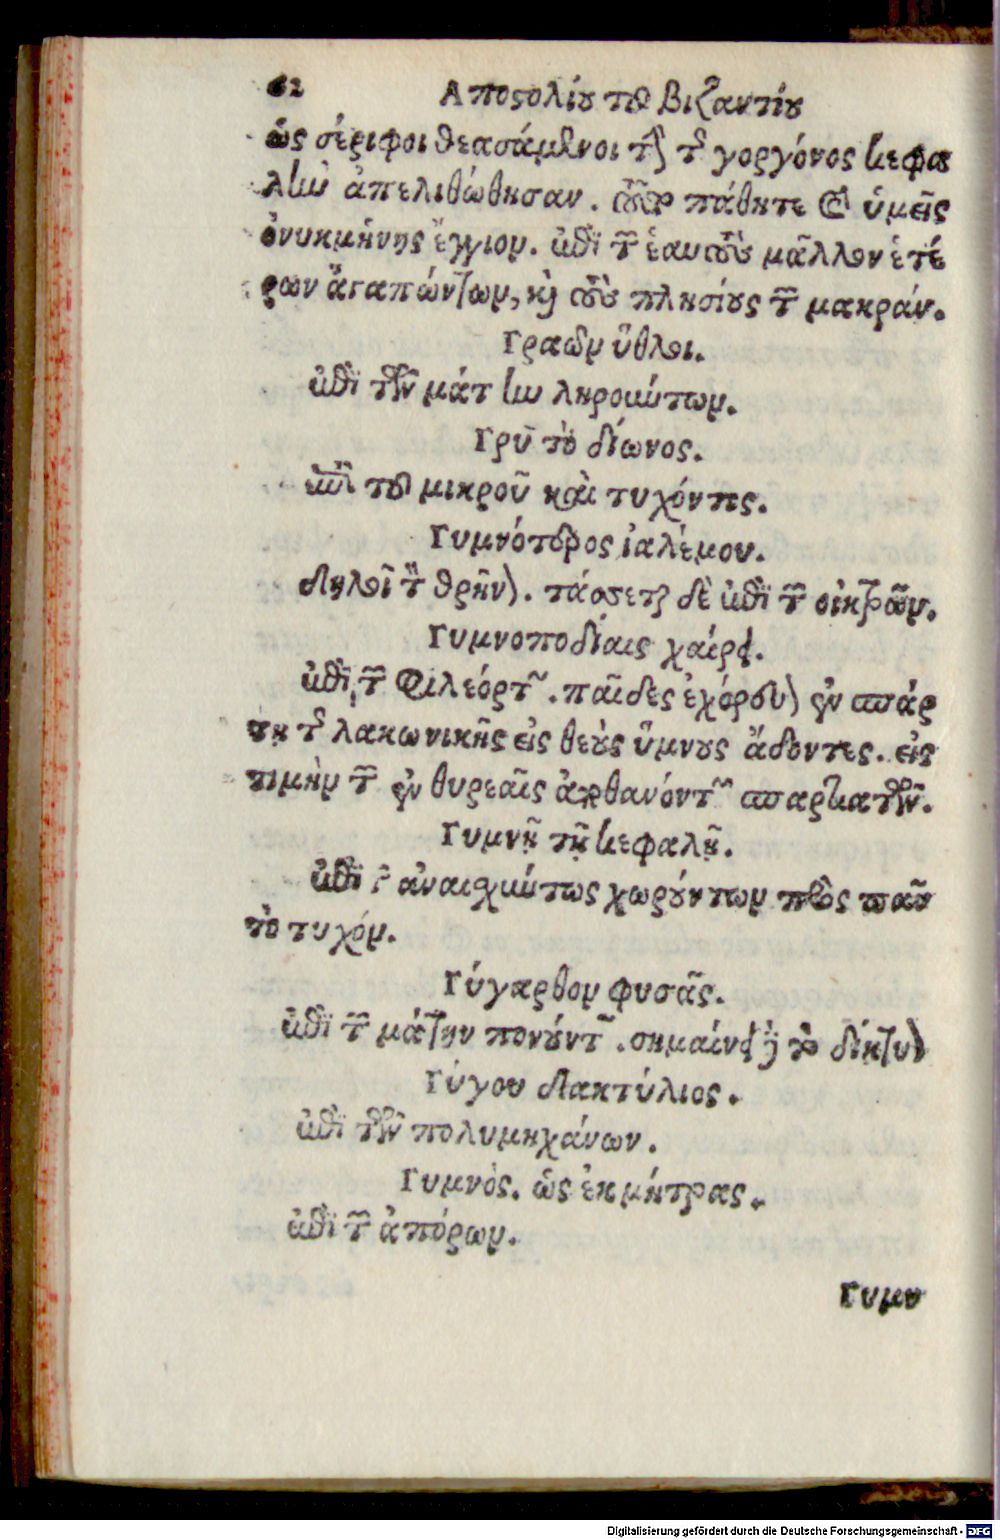 62 Αποστολίου τοῦ βιζαντίου
ὡς σέριφοι θεασάμενοι τὴν τῆς γοργόνος κεφα
λὴν ἀπελιθώθησαν. πάθητε καὶ ὑμεῖς
ἔγγιον. ἐπὶ τῶν ἑαυτοὺς μᾶλλον ἑτέ
ρων ἀγαπώντων, καὶ τοὺς πλησίους τῶν μακράν.
Γραῶν ὕθλοι.
ἐπὶ τῶν μάτην ληρούντων.
Γρῦ τὸ δίωνος.
ἐπὶ τοῦ μικροῦ καὶ τυχόντος.
Γυμνότερος ἰαλέμου.
δηλοῖ τὸν θρῆνον. τάσσεται δὲ ἐπὶ τῶν οἰκτρῶν.
Γυμνοποδίαις χαίρει.
ἐπὶ τῶν φιλεόρτων. παῖδες ἐχόρευον ἐν σπάρ
τῃ τῆς λακωνικῆς εἰς θεοὺς ὕμνους ᾄδοντες. εἰς
τιμὴν τῶν ἐν θυρεαῖς ἀποθανόντων σπαρτιατῶν.
Γυμνῇ τῇ κεφαλῇ.
ἐπὶ τῶν ἀναισχύντως χωρούντων πρὸς πᾶν
τὸ τυχόν.
Γύγαρθον φυσᾶς.
ἐπὶ τῶν μάτην πονούντων. σημαίνει καὶ τὸ δίκτυον
Γύγου δακτύλιος.
ἐπὶ τῶν πολυμηχάνων.
Γυμνὸς. ὡς ἐκ μήτρας.
ἐπὶ τῶν ἀπόρων.
Γυμν
Digitalisierung gefördert durch die Deutsche Forschungsgemeinschaft - DFG